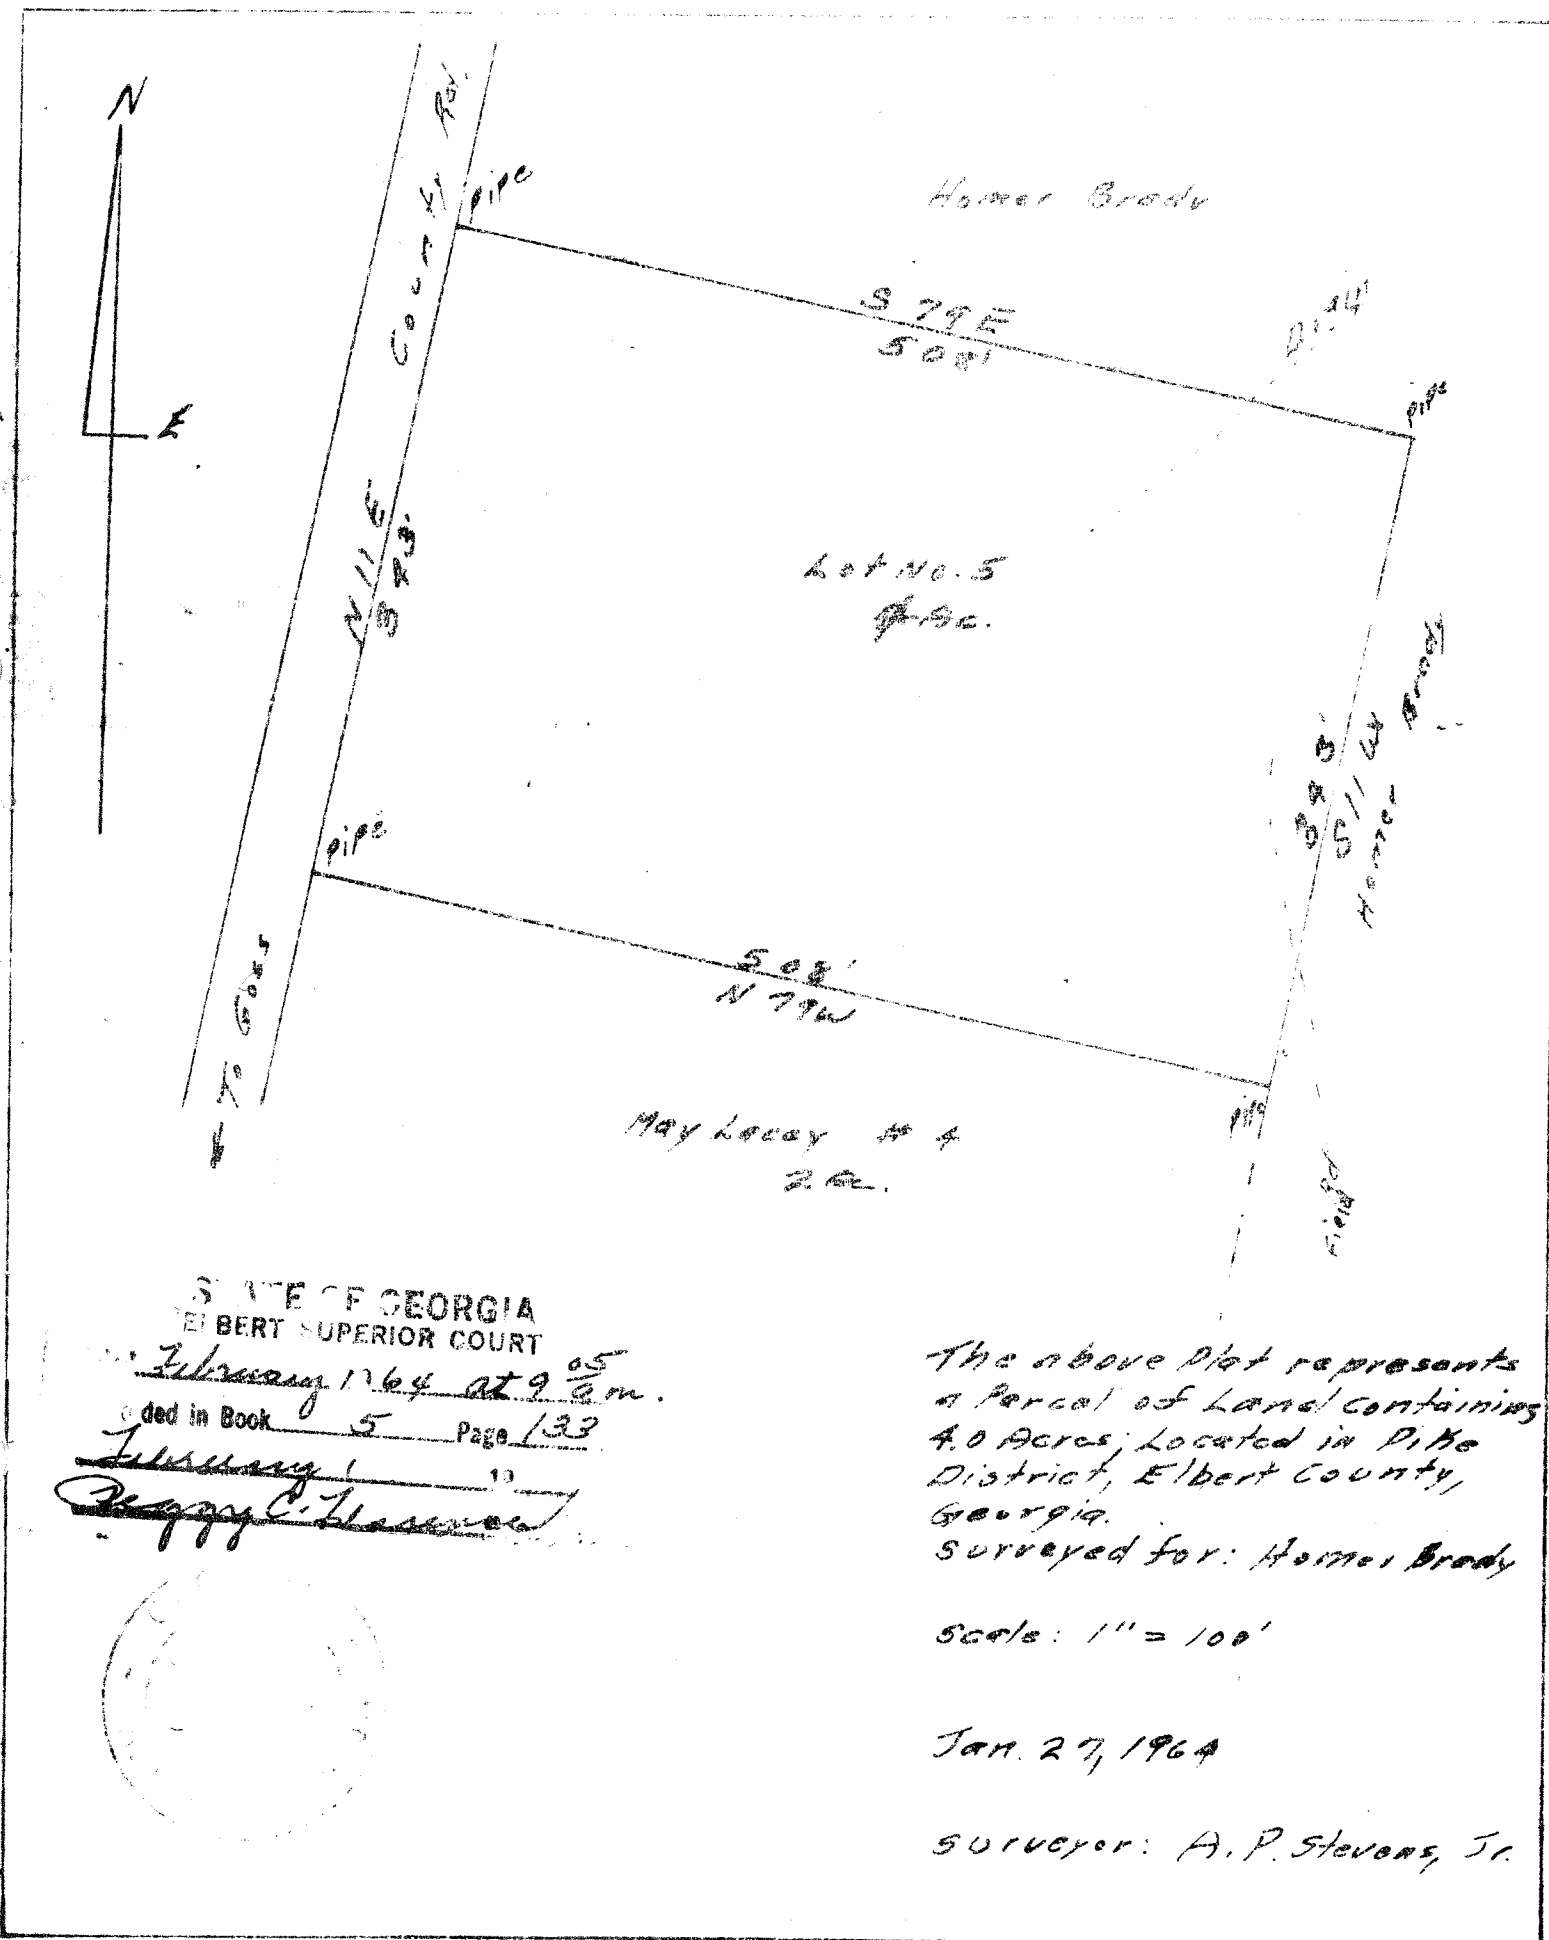 N
E
County Rd.
pipe
Homer Brady
S 79 E
508'
pipe
N 11 E
343'
Lot No. 5
4 Ac.
Homer Brady
343'
S 11 W
pipe
508'
N 79 W
To Goss
pipe
May Lacey # 4
2 Ac.
Field Rd
STATE OF GEORGIA
ELBERT SUPERIOR COURT
February 1 1964 at 9 05 a.m.
ded in Book 5 Page 133
February 1 19
Peggy C.
The above Plat represents
a Parcel of Land containing
4.0 Acres; Located in Pike
District, Elbert County,
Georgia.
Surveyed for: Homer Brady
Scale: 1" = 100'
Jan. 27, 1964
Surveyor: A. P. Stevens, Jr.